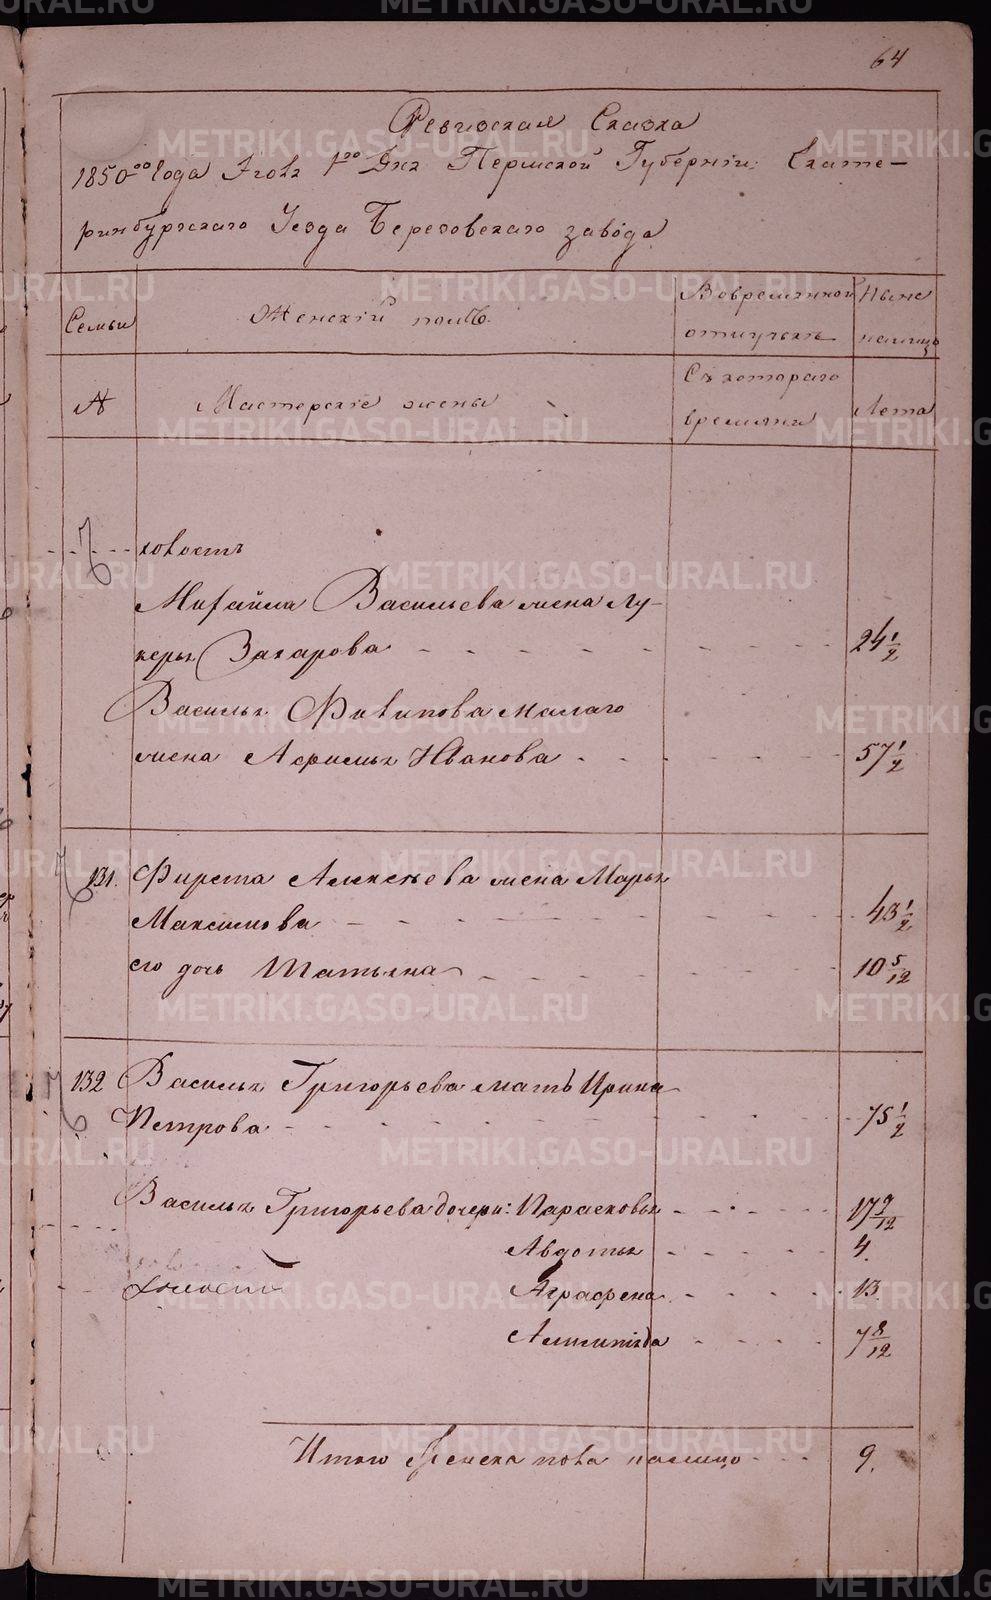 64
Ревизская Сказка
1850го Года Июля 1го Дня Пермской Губернiи Екате-
ринбургскаго Уезда Березовскаго завода
Семьи
Женскiй полъ
Вовременной
отлучкъ
Ныне
налицо
№
Мастерскiе жены
Съ котораго
времяни
Лета
холостъ
Михайла Васильева жена Лу-
керья Захарова 24 1/2
Василья Филипова малаго
жена Афимья Иванова 57 1/2
131. Фирста Алексъева жена Марья
Максимова 43 1/2
его дочь Татьяна 10 5/12
132 Василья Григорьева мать Ирина
Петрова 75 1/2
Василья Григорьева дочери: Парасковья 17 9/12
Авдотья 4.
холостъ
Аграфена 13
7 8/12
Итого Женска пола налицо 9.
METRIKI.GASO-URAL.RU